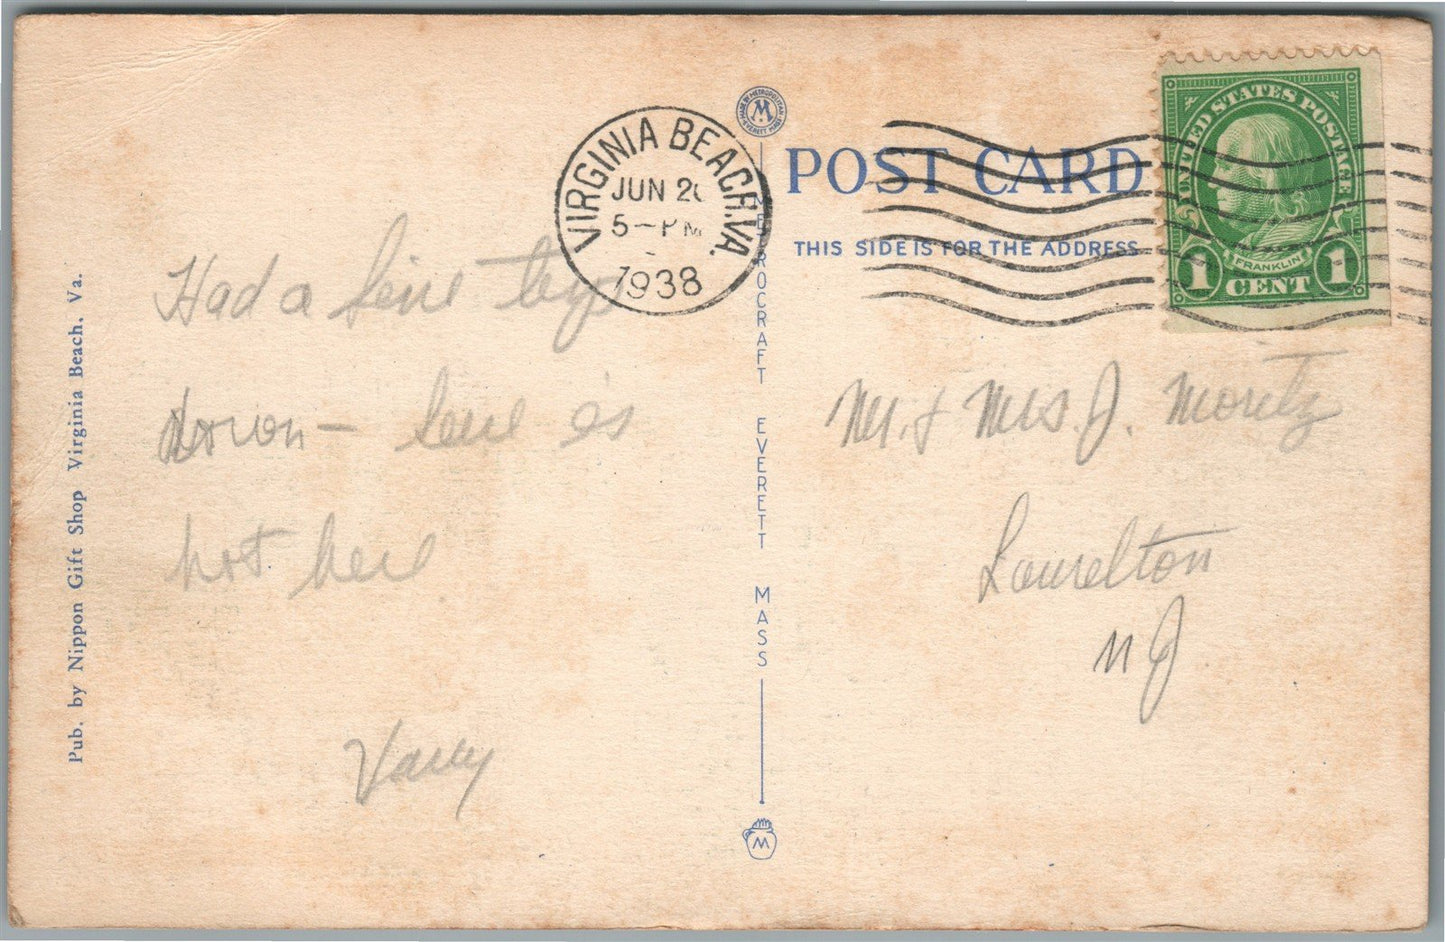 Pub. by Nippon Gift Shop Virginia Beach, Va.
VIRGINIA BEACH, VA.
JUN 20
5-PM
1938
Had a fine trip
down - fine is
hot here
MADE BY METROPOLITAN
M
EVERETT MASS
METROCRAFT EVERETT MASS
M
POST CARD
THIS SIDE IS FOR THE ADDRESS
UNITED STATES POSTAGE
FRANKLIN
1 CENT 1
Mr. & Mrs. J. Moritz
Laurelton
N J